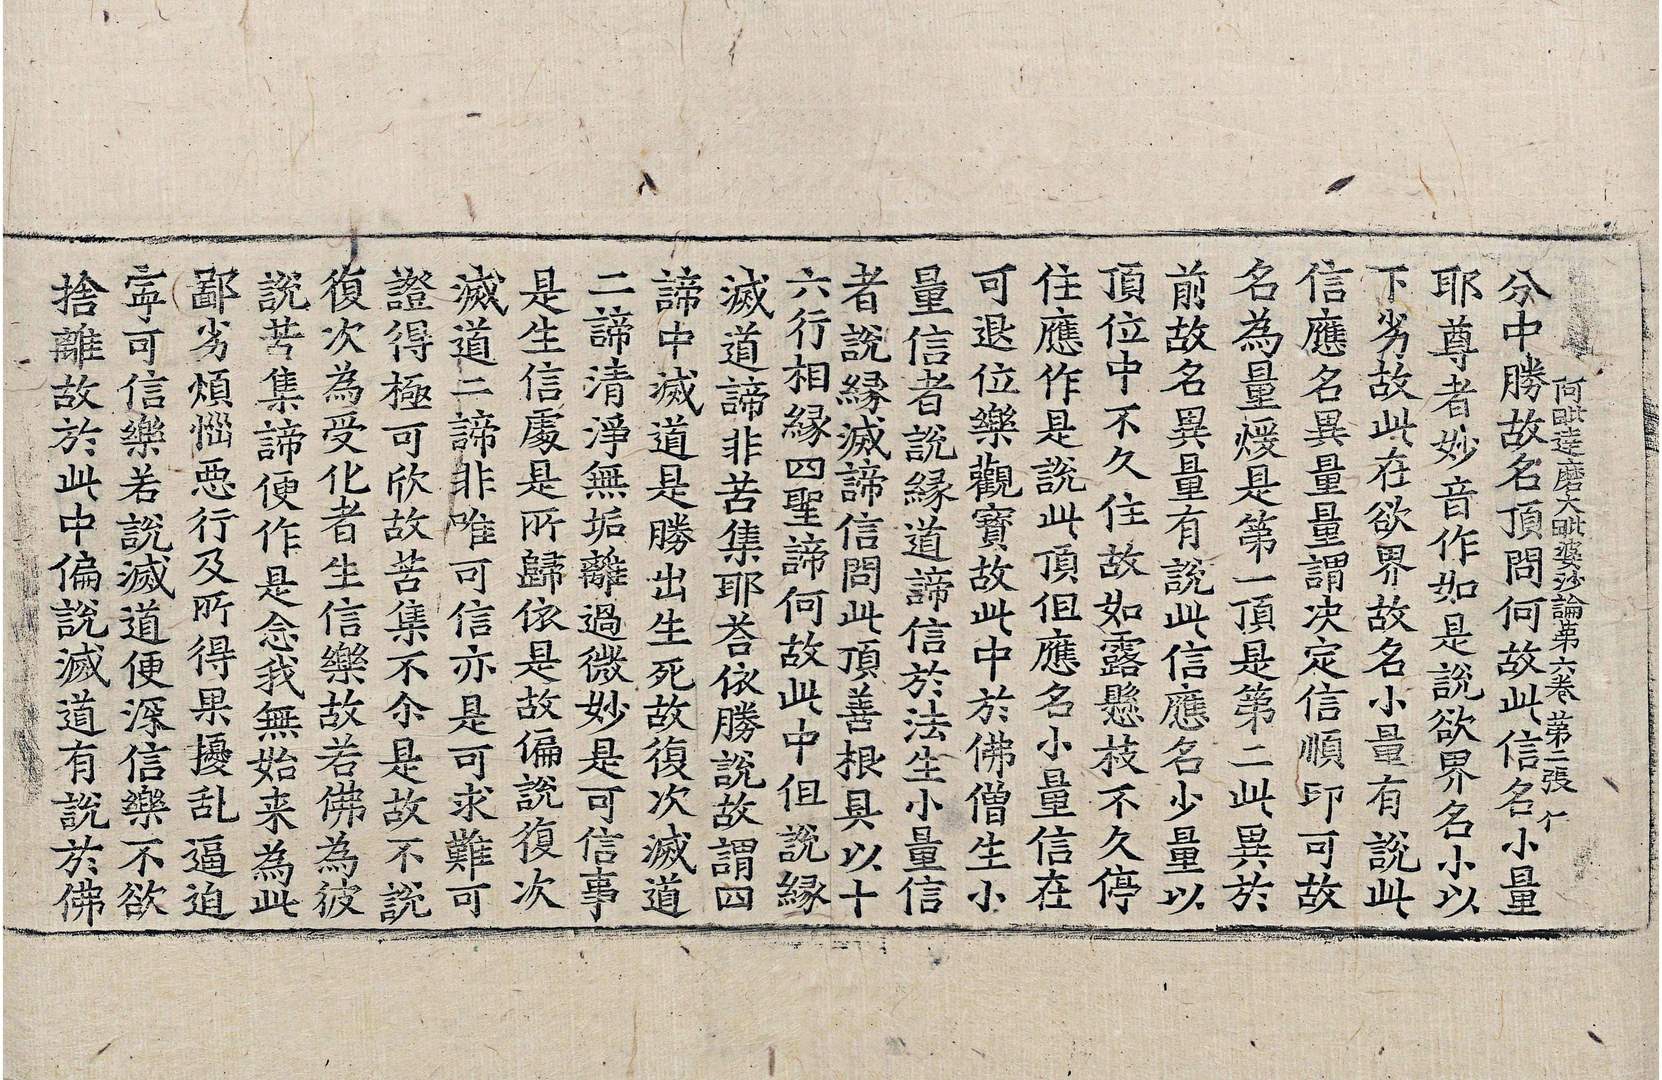 阿毗達磨大毗婆沙論第六卷 第二張 仆
分中勝故名頂問何故此信名小量
耶尊者妙音作如是說欲界名小以
下劣故此在欲界故名小量有說此
信應名異量量謂决定信順印可故
名為量煖是第一頂是第二此異於
前故名異量有說此信應名少量以
頂位中不久住故如露懸枝不久停
住應作是說此頂但應名小量信在
可退位樂觀寶故此中於佛僧生小
量信者說緣道諦信於法生小量信
者說緣滅諦信問此頂善根具以十
六行相緣四聖諦何故此中但說緣
滅道諦非苦集耶荅依勝說故謂四
諦中滅道是勝出生死故復次滅道
二諦清淨無垢離過微妙是可信事
是生信處是所歸依是故偏說復次
滅道二諦非唯可信亦是可求難可
證得極可欣故苦集不尒是故不說
復次為受化者生信樂故若佛為彼
說苦集諦便作是念我無始来為此
鄙劣煩惱惡行及所得果擾乱逼迫
寧可信樂若說滅道便深信樂不欲
捨離故於此中偏說滅道有說於佛